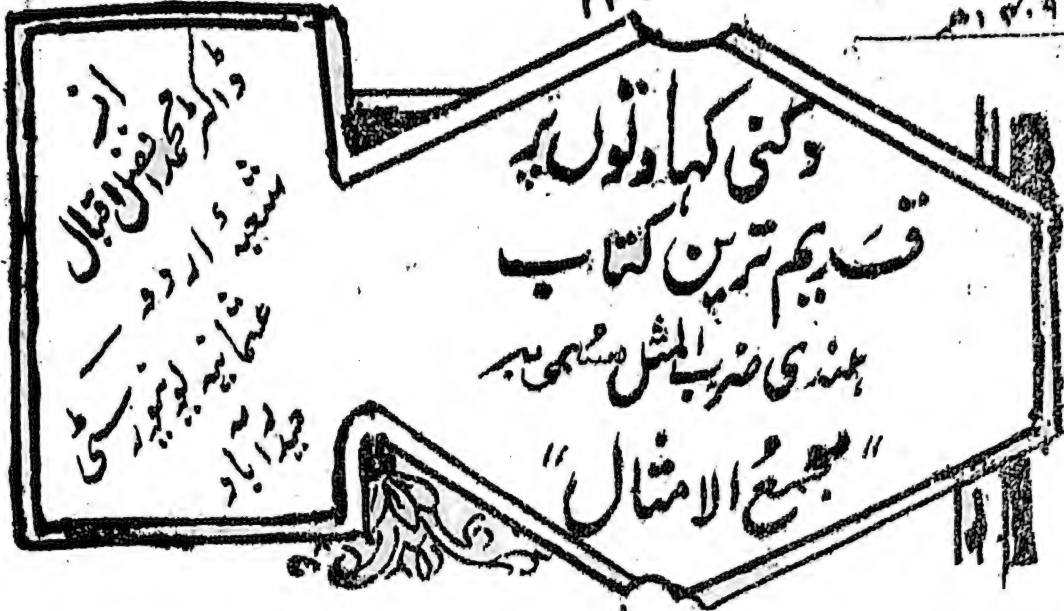 دکنی کہاوتوں پر
قدیم ترین کتاب
ہندی ضرب المثل مسمٰی بہ
"مجمع الامثال"
از
ڈاکٹر محمد افضل اقبال
شعبۂ اردو
عثمانیہ یونیورسٹی
حیدرآباد